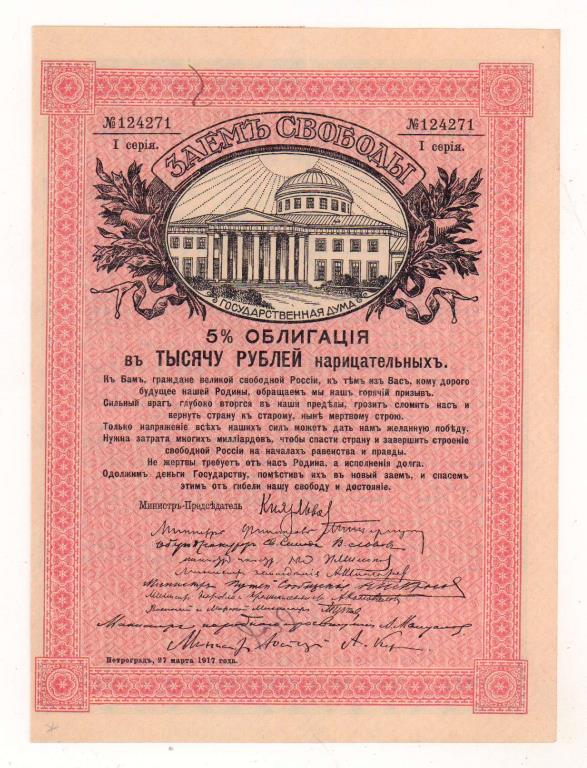 №124271
I серія.
№124271
I серія.
ЗАЕМЪ СВОБОДЫ
ГОСУДАРСТВЕННАЯ ДУМА
5% ОБЛИГАЦІЯ
въ ТЫСЯЧУ РУБЛЕЙ нарицательныхъ.
Къ Вамъ, граждане великой свободной Россіи, къ тѣмъ изъ Васъ, кому дорого
будущее нашей Родины, обращаемъ мы нашъ горячій призывъ.
Сильный врагъ глубоко вторгся въ наши предѣлы, грозитъ сломить насъ и
вернуть страну къ старому, нынѣ мертвому строю.
Только напряженіе всѣхъ нашихъ силъ можетъ дать намъ желанную побѣду.
Нужна затрата многихъ милліардовъ, чтобы спасти страну и завершить строеніе
свободной Россіи на началахъ равенства и правды.
Не жертвы требуетъ отъ насъ Родина, а исполненія долга.
Одолжимъ деньги Государству, помѣстивъ ихъ въ новый заемъ, и спасемъ
этимъ отъ гибели нашу свободу и достояніе.
Министръ-Предсѣдатель Князь Львовъ
Министръ Финансовъ
Оберъ Прокуроръ Св. Синода В. Львовъ
Министръ земледѣлія А. Шингаревъ
Министръ Путей Сообщенія Н. Некрасовъ
Военный и Морской Министръ
Министръ народнаго просвѣщенія А. Мануйловъ
Министръ Юстиціи А. Керенскій
Петроградъ, 27 марта 1917 года.